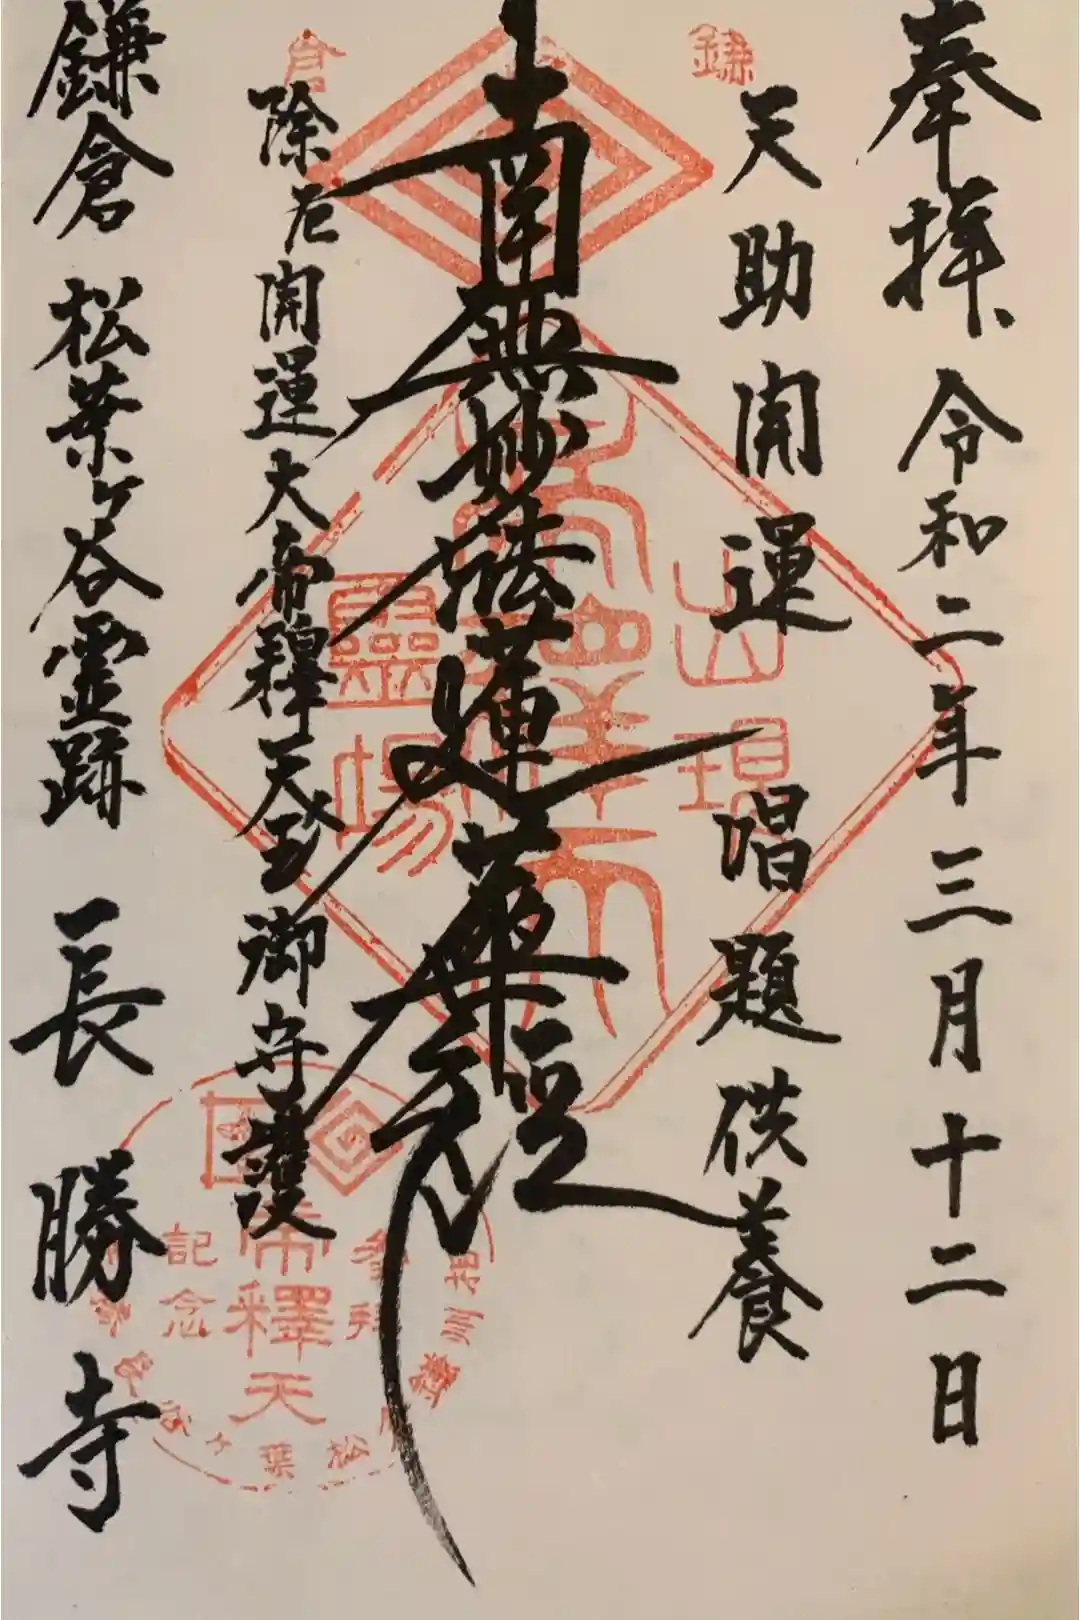 奉拝 令和二年三月十二日
天助開運 唱題供養
南無妙法蓮華経
除厄開運大帝釋天王御守護
鎌倉 松葉ヶ谷霊跡 長勝寺
鎌倉
出現
帝釋天
靈場
参拝
帝釋天
記念
松葉ヶ谷